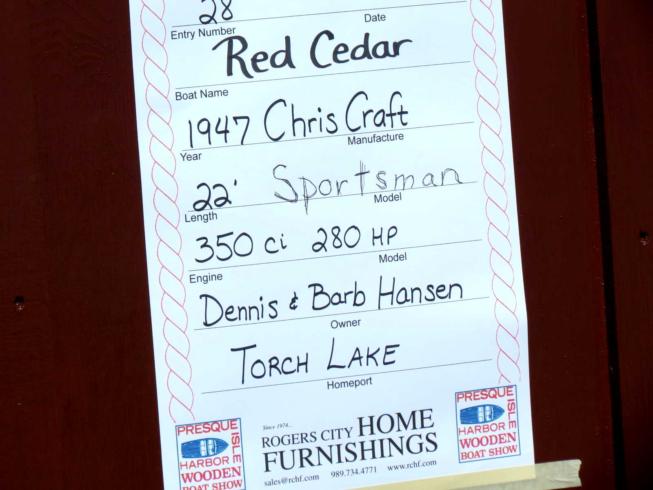 28
Entry Number Date
Red Cedar
Boat Name
1947 Chris Craft
Year Manufacture
22' Sportsman
Length Model
350 ci 280 HP
Engine Model
Dennis & Barb Hansen
Owner
TORCH LAKE
Homeport
PRESQUE ISLE
HARBOR
WOODEN
BOAT SHOW
Since 1974...
ROGERS CITY HOME
FURNISHINGS
sales@rchf.com 989.734.4771 www.rchf.com
PRESQUE ISLE
HARBOR
WOODEN
BOAT SHOW